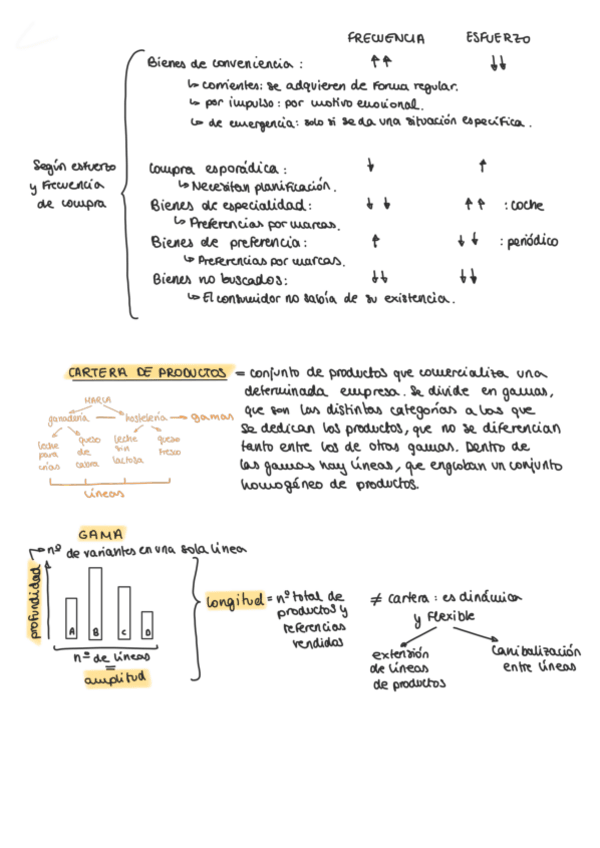 FRECUENCIA ESFUERZO
Bienes de conveniencia : ↑↑ ↓↓
↳ corrientes: se adquieren de forma regular.
↳ por impulso : por motivo emocional.
↳ de emergencia: solo si se da una situación específica.
Según esfuerzo
y frecuencia
de compra
Compra esporádica : ↓ ↑
↳ Necesitan planificación.
Bienes de especialidad: ↓↓ ↑↑ : coche
↳ Preferencias por marcas.
Bienes de preferencia: ↑ ↓↓ : periódico
↳ Preferencias por marcas.
Bienes no buscados: ↓↓ ↓↓
↳ El consumidor no sabía de su existencia.
CARTERA DE PRODUCTOS = conjunto de productos que comercializa una
determinada empresa. Se divide en gamas,
que son las distintas categorías a las que
se dedican los productos, que no se diferencian
tanto entre los de otras gamas. Dentro de
las gamas hay líneas, que engloban un conjunto
homogéneo de productos.
MARCA
ganadería hostelería → gamas
leche para crías
queso de cabra
leche sin lactosa
queso fresco
líneas
GAMA
nº de variantes en una sola línea
profundidad
A B C D
nº de líneas
=
amplitud
longitud = nº total de
productos y
referencias
vendidos
≠ cartera : es dinámica
y flexible
extensión
de líneas
de productos
canibalización
entre líneas